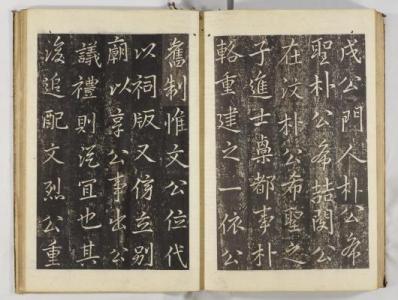 公門人朴公希
聖朴公希喆閔公
在汶朴公希聖之
子進士都事朴
輅重建之一依公
舊制惟文公位代
以祠版又傍立别
廟以享公事出公
議禮則從宜也其
後追配文烈公重